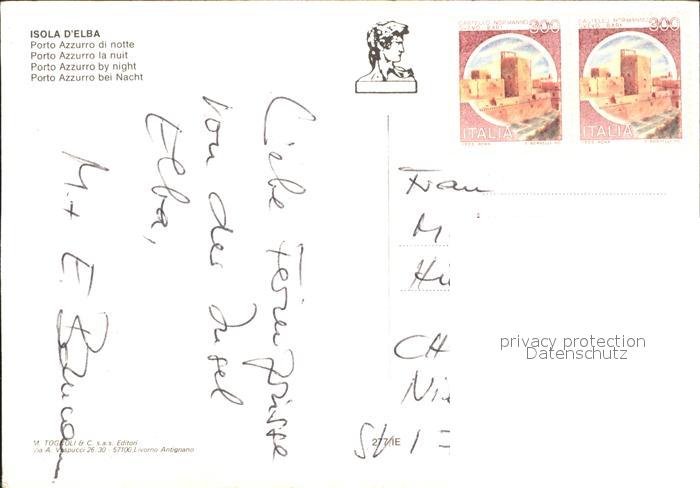 ISOLA D'ELBA
Porto Azzurro di notte
Porto Azzurro la nuit
Porto Azzurro by night
Porto Azzurro bei Nacht
CASTELLO NORMANNO
SVEVO BARI
300
ITALIA
CASTELLO NORMANNO
SVEVO BARI
300
ITALIA
Liebe Feriengrüsse
von der Insel
Elba,
M. + E.
Frau
M
Hi
CH
Ni
privacy protection
Datenschutz
277/IE
M. TOGNOLI & C. s.a.s. Editori
Via A. Vespucci 26.30 - 57100 Livorno Antignano